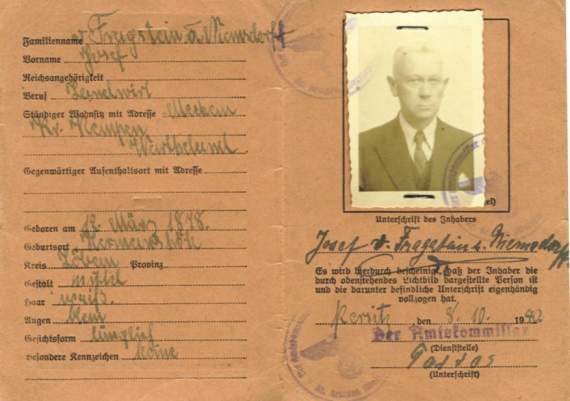 Familienname v. Fragstein u. Niemsdorff
Vorname Josef
Reichsangehörigkeit
Beruf Landwirt
Ständiger Wohnsitz mit Adresse
Kr. Kempen
Wartheland
Gegenwärtiger Aufenthaltsort mit Adresse
Geboren am 18. März 1878.
Geburtsort
Kreis Provinz
Gestalt mittel
Haar weiß.
Augen blau
Gesichtsform länglich
Besondere Kennzeichen keine
Unterschrift des Inhabers
Josef v. Fragstein u. Niemsdorff.
Es wird hierdurch bescheinigt, daß der Inhaber die
durch obenstehendes Lichtbild dargestellte Person ist
und die darunter befindliche Unterschrift eigenhändig
vollzogen hat.
den 8. 10. 1942
Der Amtskommissar
(Dienststelle)
(Unterschrift)